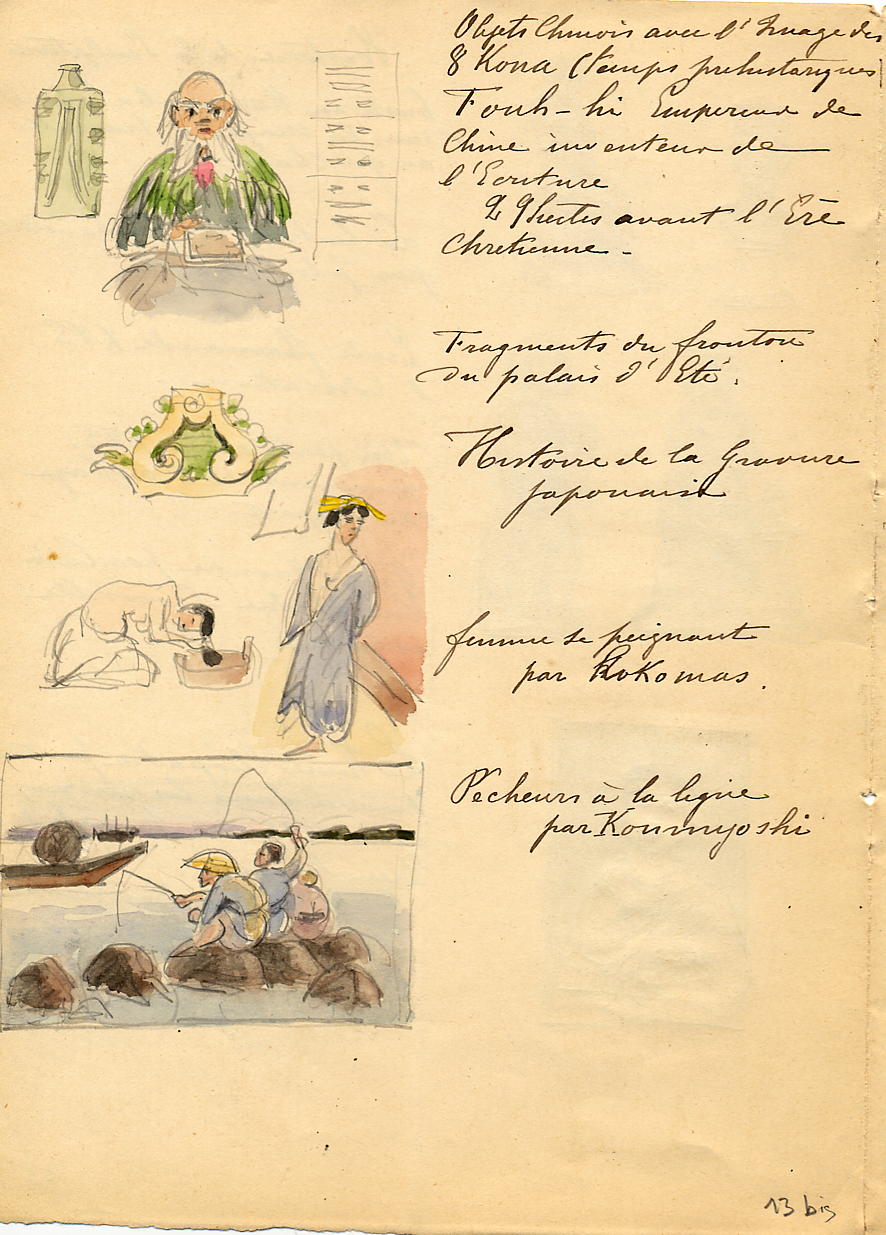 Objets Chinois avec l'Image des
8 Koua (temps préhistoriques
Fouh-hi Empereur de
Chine inventeur de
l'Ecriture
29 Siecles avant l'Ere
Chretienne -
Fragments du fronton
du palais d'Eté.
Histoire de la Gravure
Japonaise
femme se peignant
par
Pêcheurs à la ligne
par Koumyoshi
13 bis